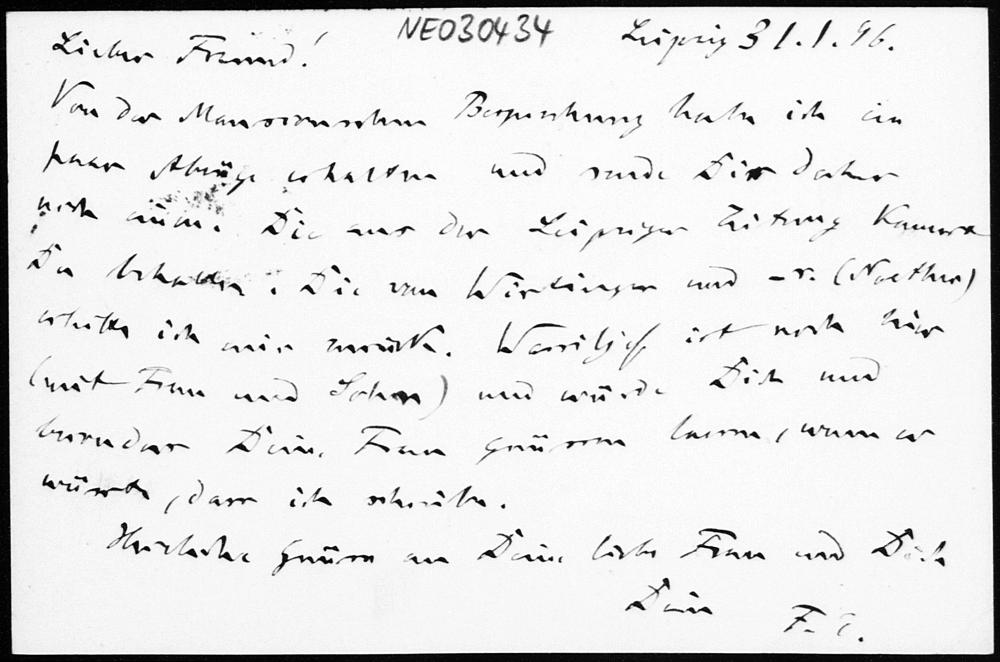 NEO30434
Leipzig 31.1.96.
Lieber Freund!
Von der Mausernschen Besprechung habe ich ein
paar Abzüge erhalten und sende Dir daher
noch einen. Die aus der Leipziger Zeitung kannst
Du behalten. Die von Wirtinger und -r. (Noether)
erbitte ich mir zurück. Wassiljef ist noch hier
(mit Frau und Sohn) und würde Dich und
besonders Deine Frau grüssen lassen, wenn er
wüsste, dass ich schreibe.
Herzliche Grüsse an Deine liebe Frau und Dich
Dein
F. E.